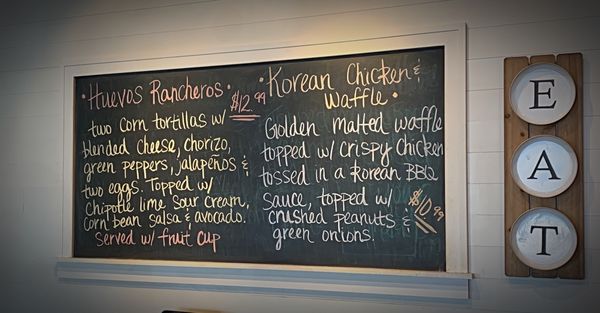 • Huevos Rancheros •
$12.99
two corn tortillas w/
blended cheese, chorizo,
green peppers, jalapeños &
two eggs. Topped w/
Chipotle lime sour cream,
corn bean salsa & avocado.
Served w/ fruit cup
• Korean Chicken &
Waffle •
Golden malted waffle
topped w/ crispy chicken
tossed in a Korean BBQ
sauce, topped w/
crushed peanuts &
green onions.
$10.99
E
A
T